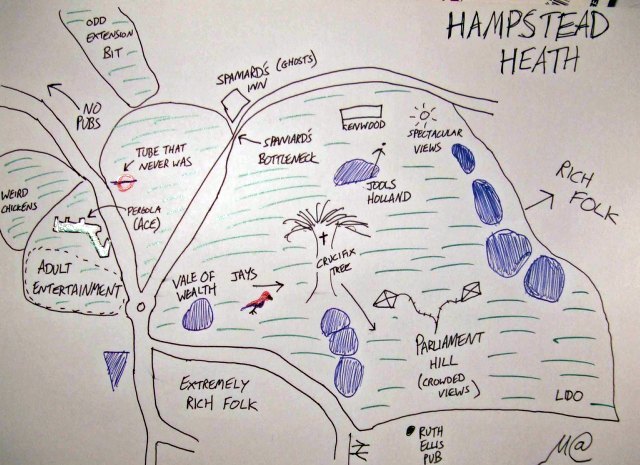 HAMPSTEAD
HEATH
ODD
EXTENSION
BIT
SPANIARD'S (GHOSTS)
INN
NO
PUBS
TUBE THAT
NEVER WAS
SPANIARD'S
BOTTLENECK
KENWOOD
SPECTACULAR
VIEWS
JOOLS
HOLLAND
RICH
FOLK
WEIRD
CHICKENS
PERGOLA
(ACE)
ADULT
ENTERTAINMENT
VALE OF
WEALTH
JAYS
CRUCIFIX
TREE
PARLIAMENT
HILL
(CROWDED
VIEWS)
EXTREMELY
RICH FOLK
LIDO
RUTH
ELLIS
PUB
M@